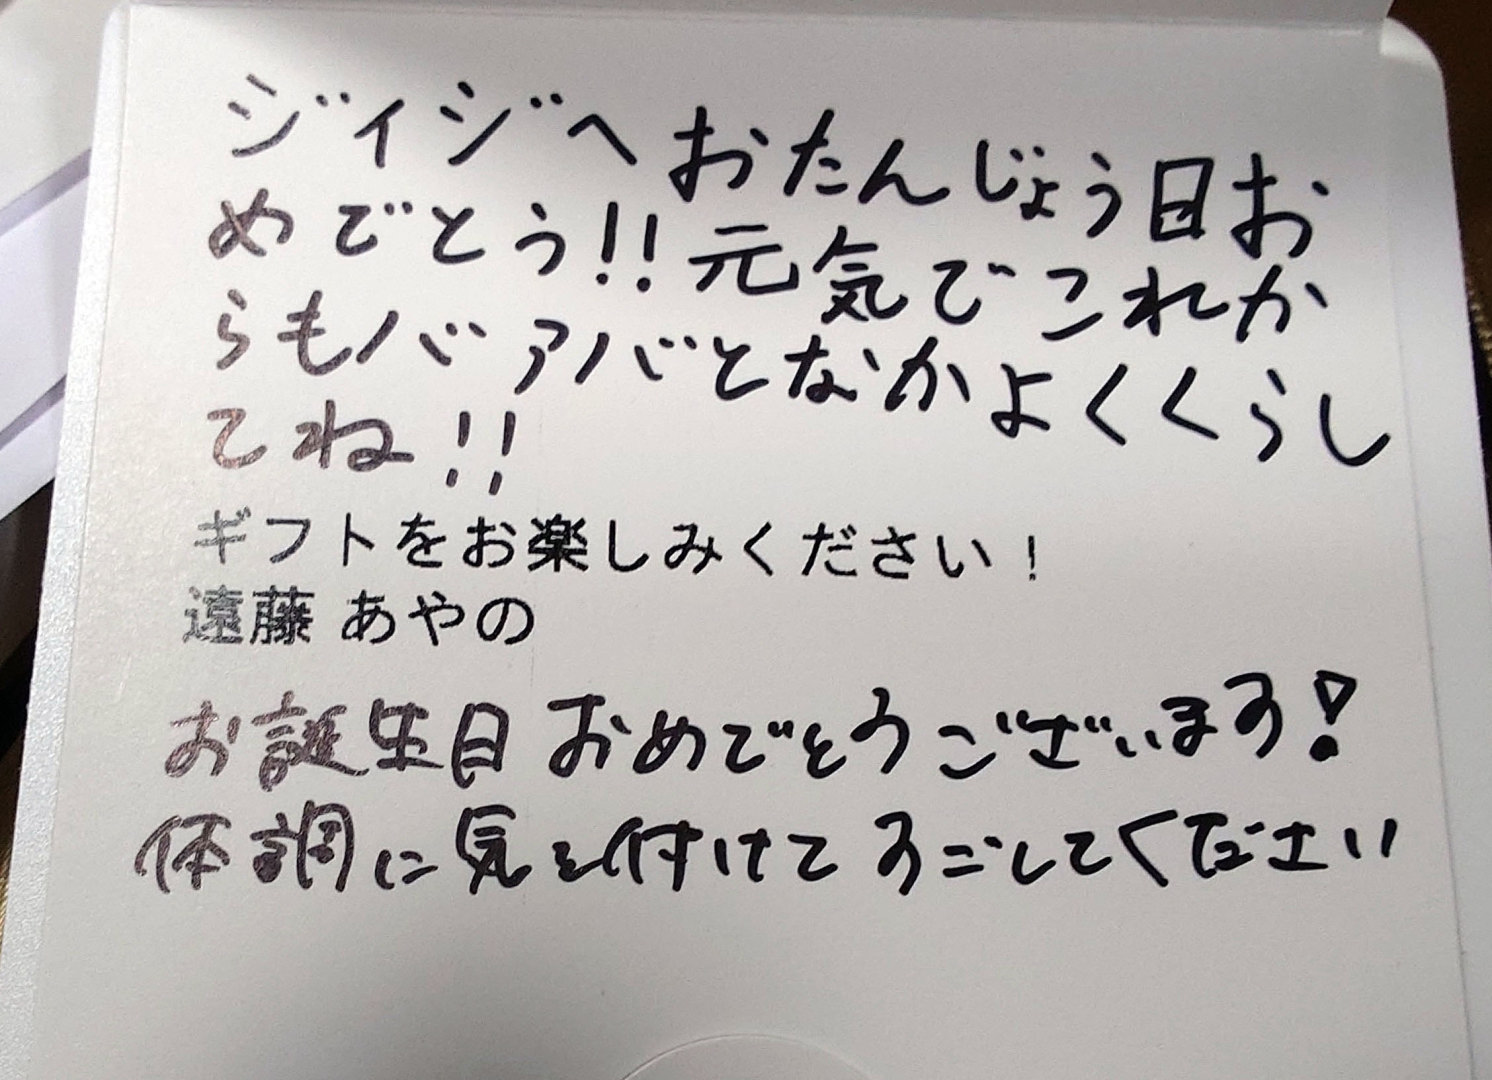 ジイジへおたんじょう日お
めでとう!!元気でこれか
らもバアバとなかよくくらし
てね!!
ギフトをお楽しみください！
遠藤 あやの
お誕生日おめでとうございます!
体調に気を付けてすごしてください